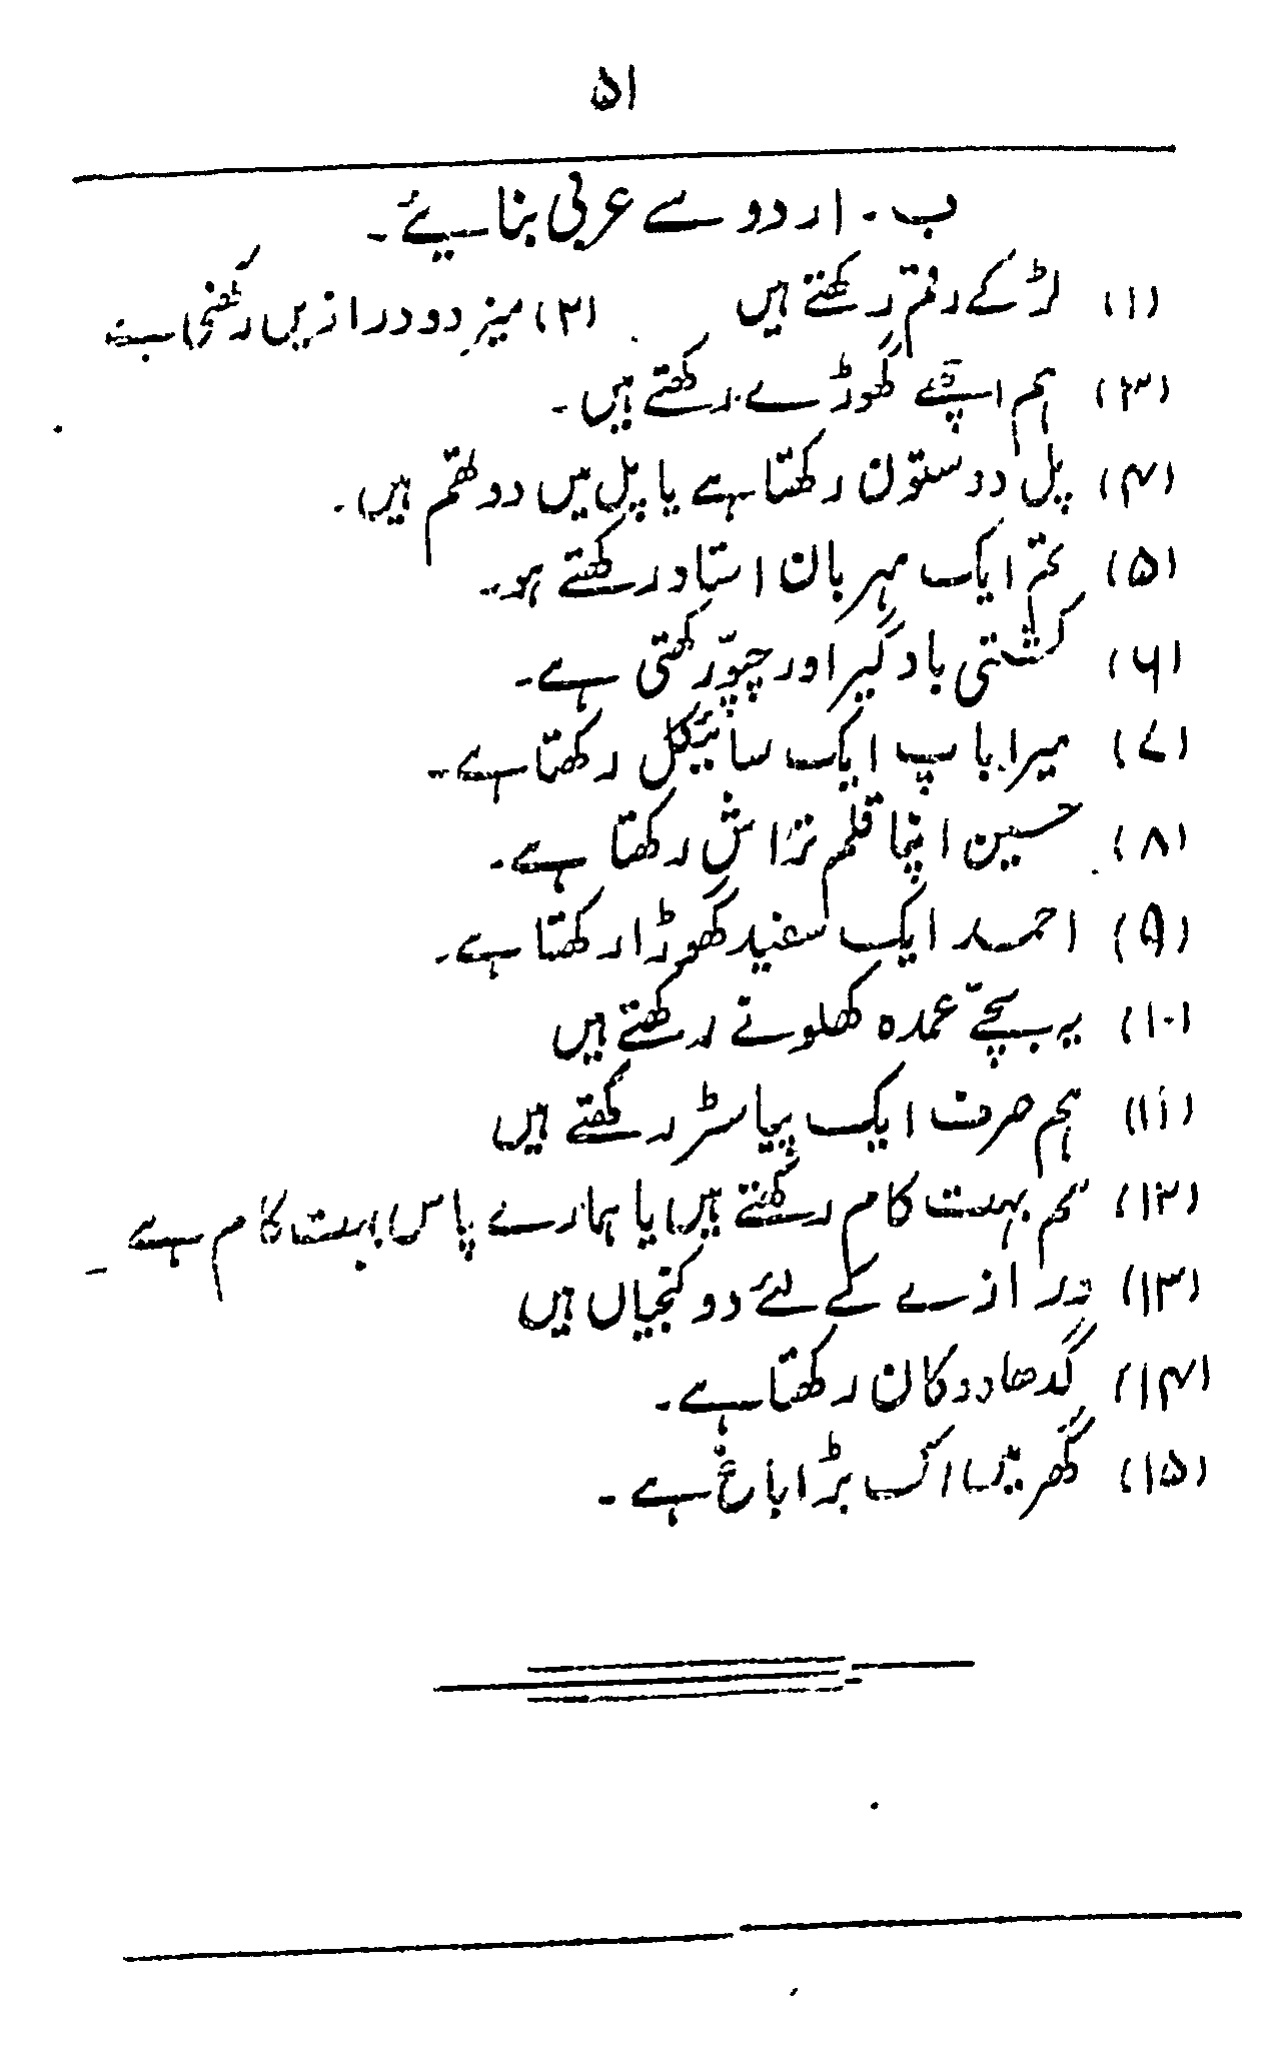 ۵۱
ب۔ اردو سے عربی بنایئے۔
(۱) لڑکے رقم رکھتے ہیں (۲) میز دو درازیں رکھتی ہے
(۳) ہم اچھے گھوڑے رکھتے ہیں۔
(۴) پل دو ستون رکھتا ہے یا پل میں دو تھم ہیں۔
(۵) تم ایک مہربان استاد رکھتے ہو۔
(۶) کشتی بادگیر اور چپّو رکھتی ہے۔
(۷) میرا باپ ایک سائیکل رکھتا ہے۔
(۸) حسین اپنا قلم تراش رکھتا ہے۔
(۹) احمد ایک سفید گھوڑا رکھتا ہے۔
(۱۰) یہ بچّے عمدہ کھلونے رکھتے ہیں
(۱۱) ہم صرف ایک پیاسٹر رکھتے ہیں
(۱۲) ہم بہت کام رکھتے ہیں یا ہمارے پاس بہت کام ہے۔
(۱۳) در ازے کے لئے دو کنجیاں ہیں
(۱۴) گدھا دو کان رکھتا ہے۔
(۱۵) گھر میں اک بڑا باغ ہے۔